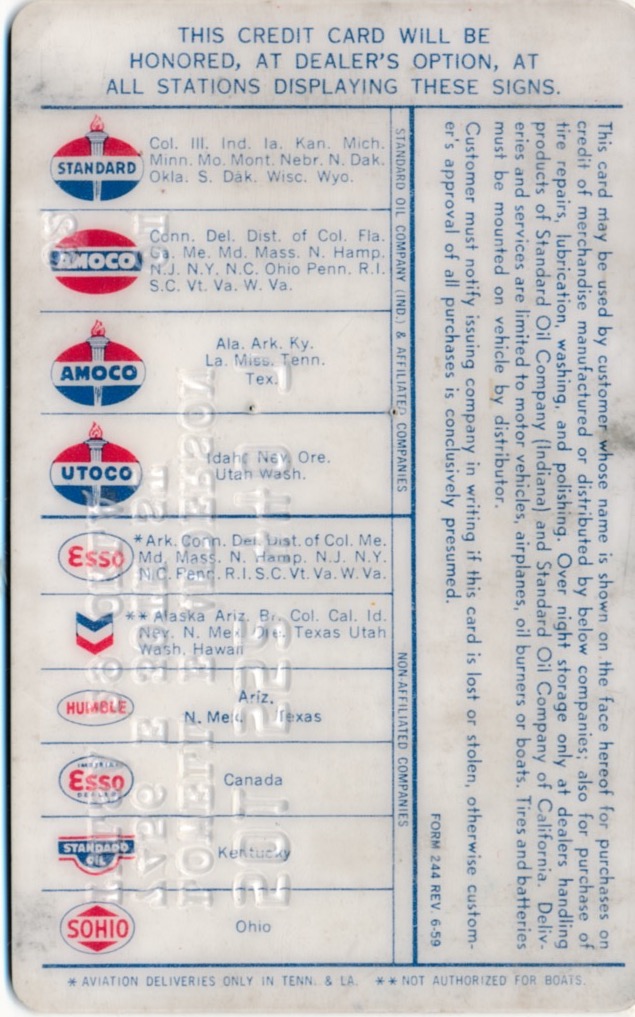 THIS CREDIT CARD WILL BE
HONORED, AT DEALER'S OPTION, AT
ALL STATIONS DISPLAYING THESE SIGNS.
STANDARD
Col. Ill. Ind. Ia. Kan. Mich.
Minn. Mo. Mont. Nebr. N. Dak.
Okla. S. Dak. Wisc. Wyo.
AMOCO
Conn. Del. Dist. of Col. Fla.
Ga. Me. Md. Mass. N. Hamp.
N.J. N.Y. N.C. Ohio Penn. R.I.
S.C. Vt. Va. W. Va.
AMOCO
Ala. Ark. Ky.
La. Miss. Tenn.
Tex.
UTOCO
Idaho Nev. Ore.
Utah Wash.
STANDARD OIL COMPANY (IND.) & AFFILIATED COMPANIES
Esso
*Ark. Conn. Del. Dist. of Col. Me.
Md. Mass. N. Hamp. N.J. N.Y.
N.C. Penn. R.I. S.C. Vt. Va. W. Va.
** Alaska Ariz. Br. Col. Cal. Id.
Nev. N. Mex. Ore. Texas Utah
Wash. Hawaii
HUMBLE
Ariz.
N. Mex. Texas
IMPERIAL
Esso
DEALER
Canada
STANDARD
OIL
Kentucky
SOHIO
Ohio
NON-AFFILIATED COMPANIES
This card may be used by customer whose name is shown on the face hereof for purchases on
credit of merchandise manufactured or distributed by below companies; also for purchase of
tire repairs, lubrication, washing, and polishing. Over night storage only at dealers handling
products of Standard Oil Company (Indiana) and Standard Oil Company of California. Deliv-
eries and services are limited to motor vehicles, airplanes, oil burners or boats. Tires and batteries
must be mounted on vehicle by distributor.
Customer must notify issuing company in writing if this card is lost or stolen, otherwise custom-
er's approval of all purchases is conclusively presumed.
FORM 244 REV. 6-59
* AVIATION DELIVERIES ONLY IN TENN. & LA. ** NOT AUTHORIZED FOR BOATS.